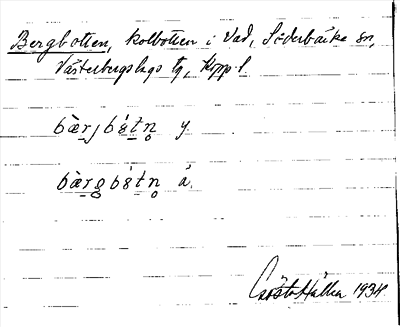 Bergbotten, kolbotten i Vad, Söderbärke sn,
Västerbergslags tg, Kopp l.
bæ̀rjbót̠n̥ y.
bæ̀rg̥bót̠n̥ ä.
Gösta Hállen 1934.